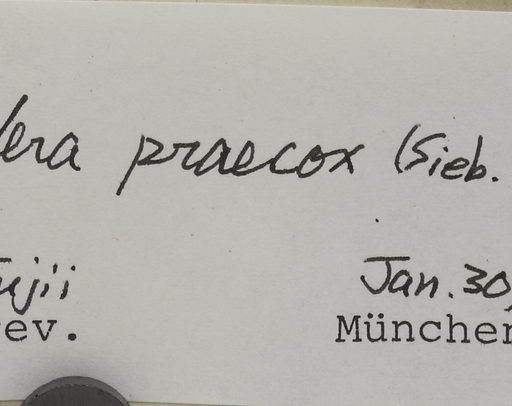 lera praecox (Sieb.
Fujii Jan. 30,
rev. München